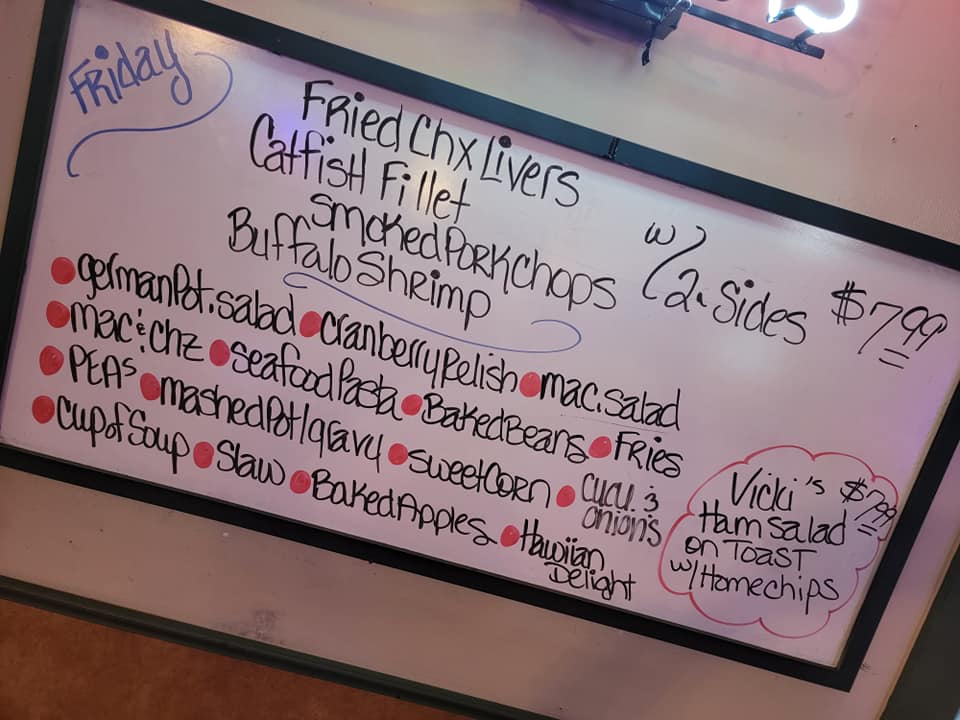 Friday
Fried Chx Livers
Catfish Fillet
Smoked Pork Chops
Buffalo Shrimp
w/2 Sides $7.99
German Pot. Salad • Cranberry Relish • Mac. Salad
Mac & Chz • Seafood Pasta • Baked Beans • Fries
PEAs • Mashed Pot/gravy • Sweet Corn • Cucu. &
Onion's
Cup of Soup • Slaw • Baked Apples • Hawiian
Delight
Vicki's $7.99
Ham Salad
on Toast
w/Homechips